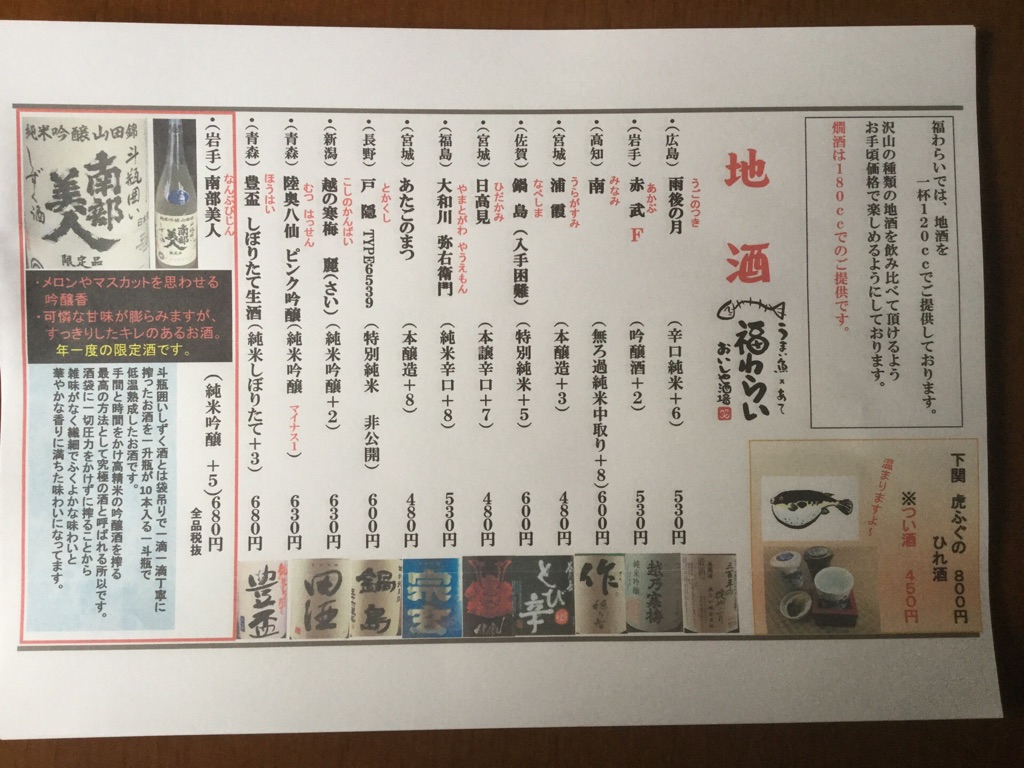 福わらいでは、地酒を
一杯120ccでご提供しております。
沢山の種類の地酒を飲み比べて頂けるよう
お手頃価格で楽しめるようにしております。
燗酒は180ccでのご提供です。
下関 虎ふぐの ひれ酒 800円
※つい酒 450円
温まりますよ~
地酒
うまい魚×あて
福わらい
おいしい酒場
・(広島) 雨後の月 うごのつき (辛口純米+6) 530円
・(岩手) 赤武 F あかぶ (吟醸酒+2) 530円
・(高知) 南 みなみ (無ろ過純米中取り+8) 600円
・(宮城) 浦霞 うらがすみ (本醸造+3) 480円
・(佐賀) 鍋島 なべしま (入手困難) (特別純米+5) 600円
・(宮城) 日高見 ひだかみ (本譲辛口+7) 480円
・(福島) 大和川 弥右衛門 やまとがわ やうえもん (純米辛口+8) 530円
・(宮城) あたごのまつ (本醸造+8) 480円
・(長野) 戸隠 とかくし TYPE6539 (特別純米 非公開) 600円
・(新潟) 越の寒梅 麗(さい) こしのかんばい (純米吟醸+2) 630円
・(青森) 陸奥八仙 ピンク吟醸 むつ はっせん (純米吟醸 マイナス1) 630円
・(青森) 豊盃 しぼりたて生酒 ほうはい (純米しぼりたて+3) 680円
・(岩手) 南部美人 なんぶびじん (純米吟醸 +5) 680円
全品税抜
越乃寒梅
純米吟醸
作
とび辛
宗玄
鍋島
田酒
豊盃
純米吟醸山田錦
斗瓶囲い
南部美人
しずく酒
限定品
・メロンやマスカットを思わせる
吟醸香
・可憐な甘味が膨らみますが、
すっきりしたキレのあるお酒。
年一度の限定酒です。
斗瓶囲いしずく酒とは袋吊りで一滴一滴丁寧に
搾ったお酒を一升瓶が10本入る一斗瓶で
低温熟成したお酒です。
手間と時間をかけ高精米の吟醸酒を搾る
最高の方法として究極の酒と呼ばれる所以です。
酒袋に一切圧力をかけずに搾ることから
雑味がなく繊細でふくよかな味わいと
華やかな香りに満ちた味わいになってます。